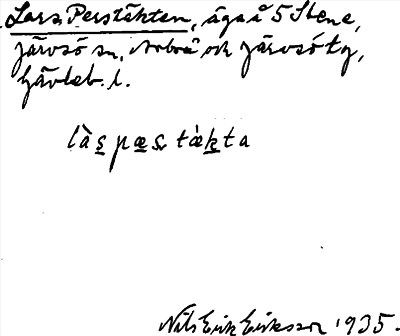 Lars Perstäkten, äga å 5 Stene,
Järvsö sn, Arbrå och Järvsö tg,
Gävleb. l.
làs pæs. tæ̀kta
Nils Erik Eriksson 1935.